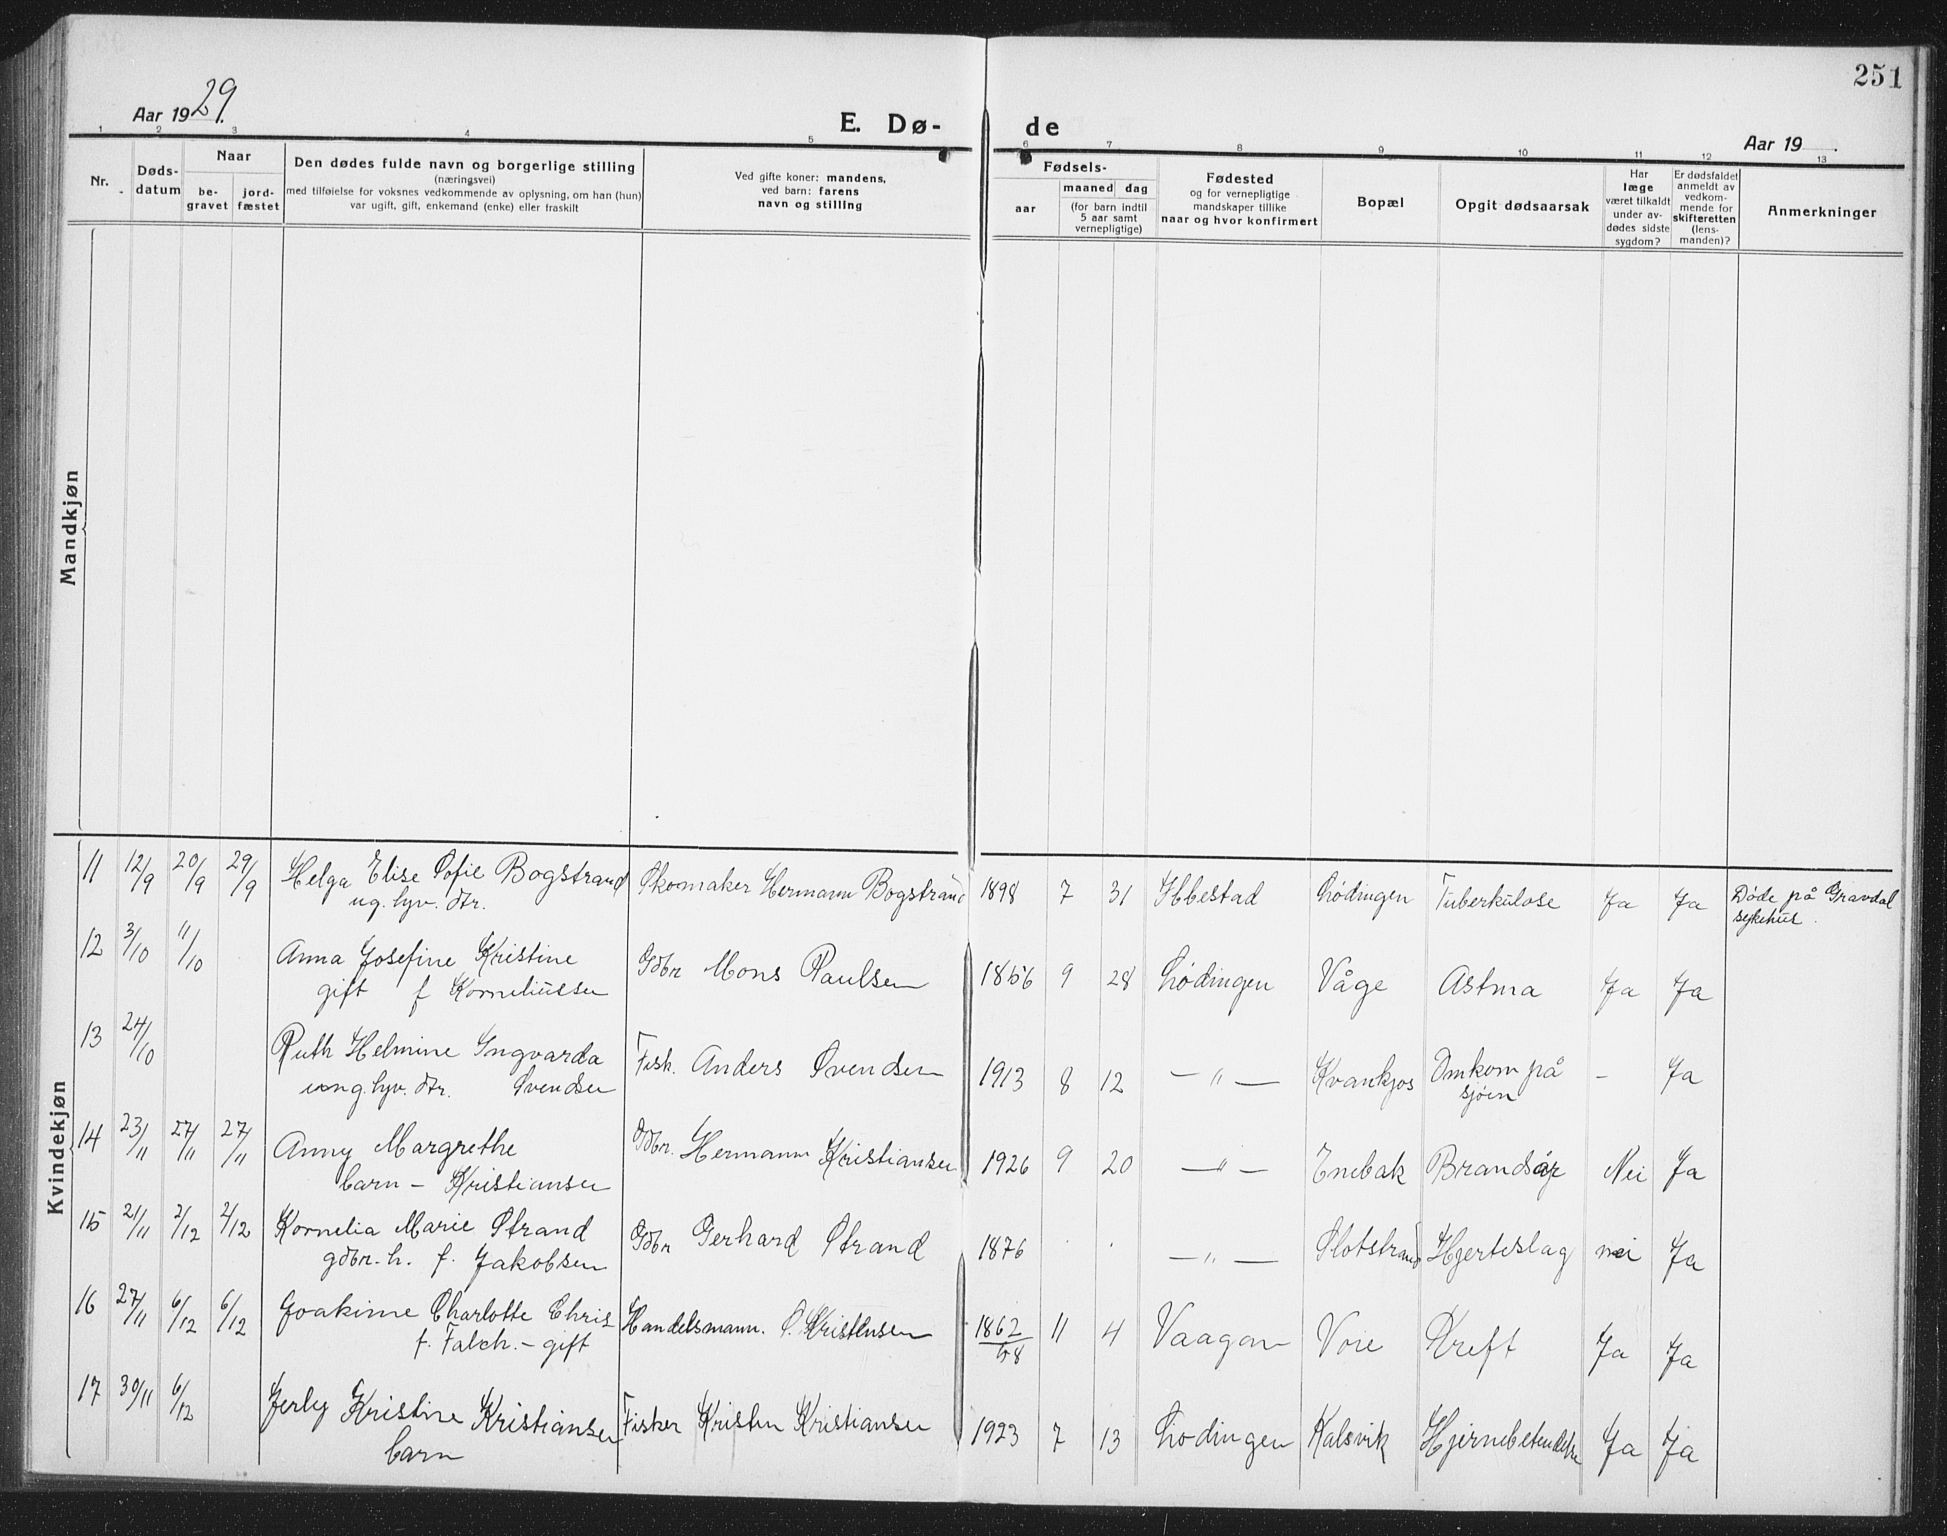 251
Aar 1929.
E. Dø-
de
Aar 19
1 2 3 4 5 6 7 8 9 10 11 12 13
Nr.
Døds-
datum
Naar
be-
gravet
jord-
fæstet
Den dødes fulde navn og borgerlige stilling
(næringsvei)
med tilføielse for voksnes vedkommende av oplysning, om han (hun)
var ugift, gift, enkemand (enke) eller fraskilt
Ved gifte koner: mandens,
ved barn: farens
navn og stilling
Fødsels-
aar
maaned dag
(for barn indtil
5 aar samt
vernepligtige)
Fødested
og for vernepligtige
mandskaper tillike
naar og hvor konfirmert
Bopæl
Opgit dødsaarsak
Har
læge
været tilkaldt
under av-
dødes sidste
sygdom?
Er dødsfaldet
anmeldt av
vedkom-
mende for
skifteretten
(lens-
manden)?
Anmerkninger
Mandkjøn
Kvindekjøn
11 12/9 20/9 29/9 Helga Elise Sofie Bogstrand Skomaker Hermann Bogstrand 1898 7 31 Ibbestad Lødingen Tuberkulose Ja Ja Døde på Gravdal
ug. hjv. dtr. sykehus.
12 3/10 11/10 Anna Josefine Kristine Gdbr Mons Paulsen 1856 9 28 Lødingen Våge Astma Ja Ja
gift f Korneliussen
13 24/10 Ruth Helmine Ingvarda Fisk. Anders Svendsen 1913 8 12 — " — Kvankjos Omkom på - Ja
ung. hjv. dtr. Svendsen sjøen
14 23/11 27/11 27/11 Anny Margrethe Gdbr. Hermann Kristiansen 1926 9 20 — " — Enebak Brandsår Nei Ja
barn - Kristiansen
15 21/11 2/12 2/12 Kornelia Marie Strand Gdbr Gerhard Strand 1876 . . — " — Slotstrand Hjerteslag nei Ja
gdbr. h. f. Jakobsen
16 27/11 6/12 6/12 Joakime Charlotte Chris Handelsmann. O. Kristensen 1862 11 4 Vaagan Voie Kreft Ja Ja
f. Falch. - gift 58
17 30/11 6/12 Jerly Kristine Kristiansen Fisker Kristen Kristiansen 1923 7 13 Lødingen Kalsvik Ja Ja
barn